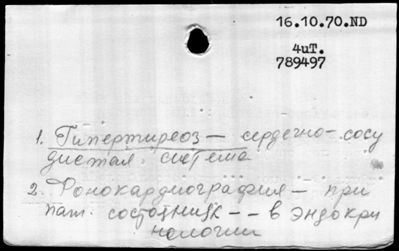 16.10.70.ND
4иТ.
789497
1. Гипертиреоз — сердечно-сосу
дистая система
2. Фонокардиография — при
пат. состояниях -- в эндокри
нологии